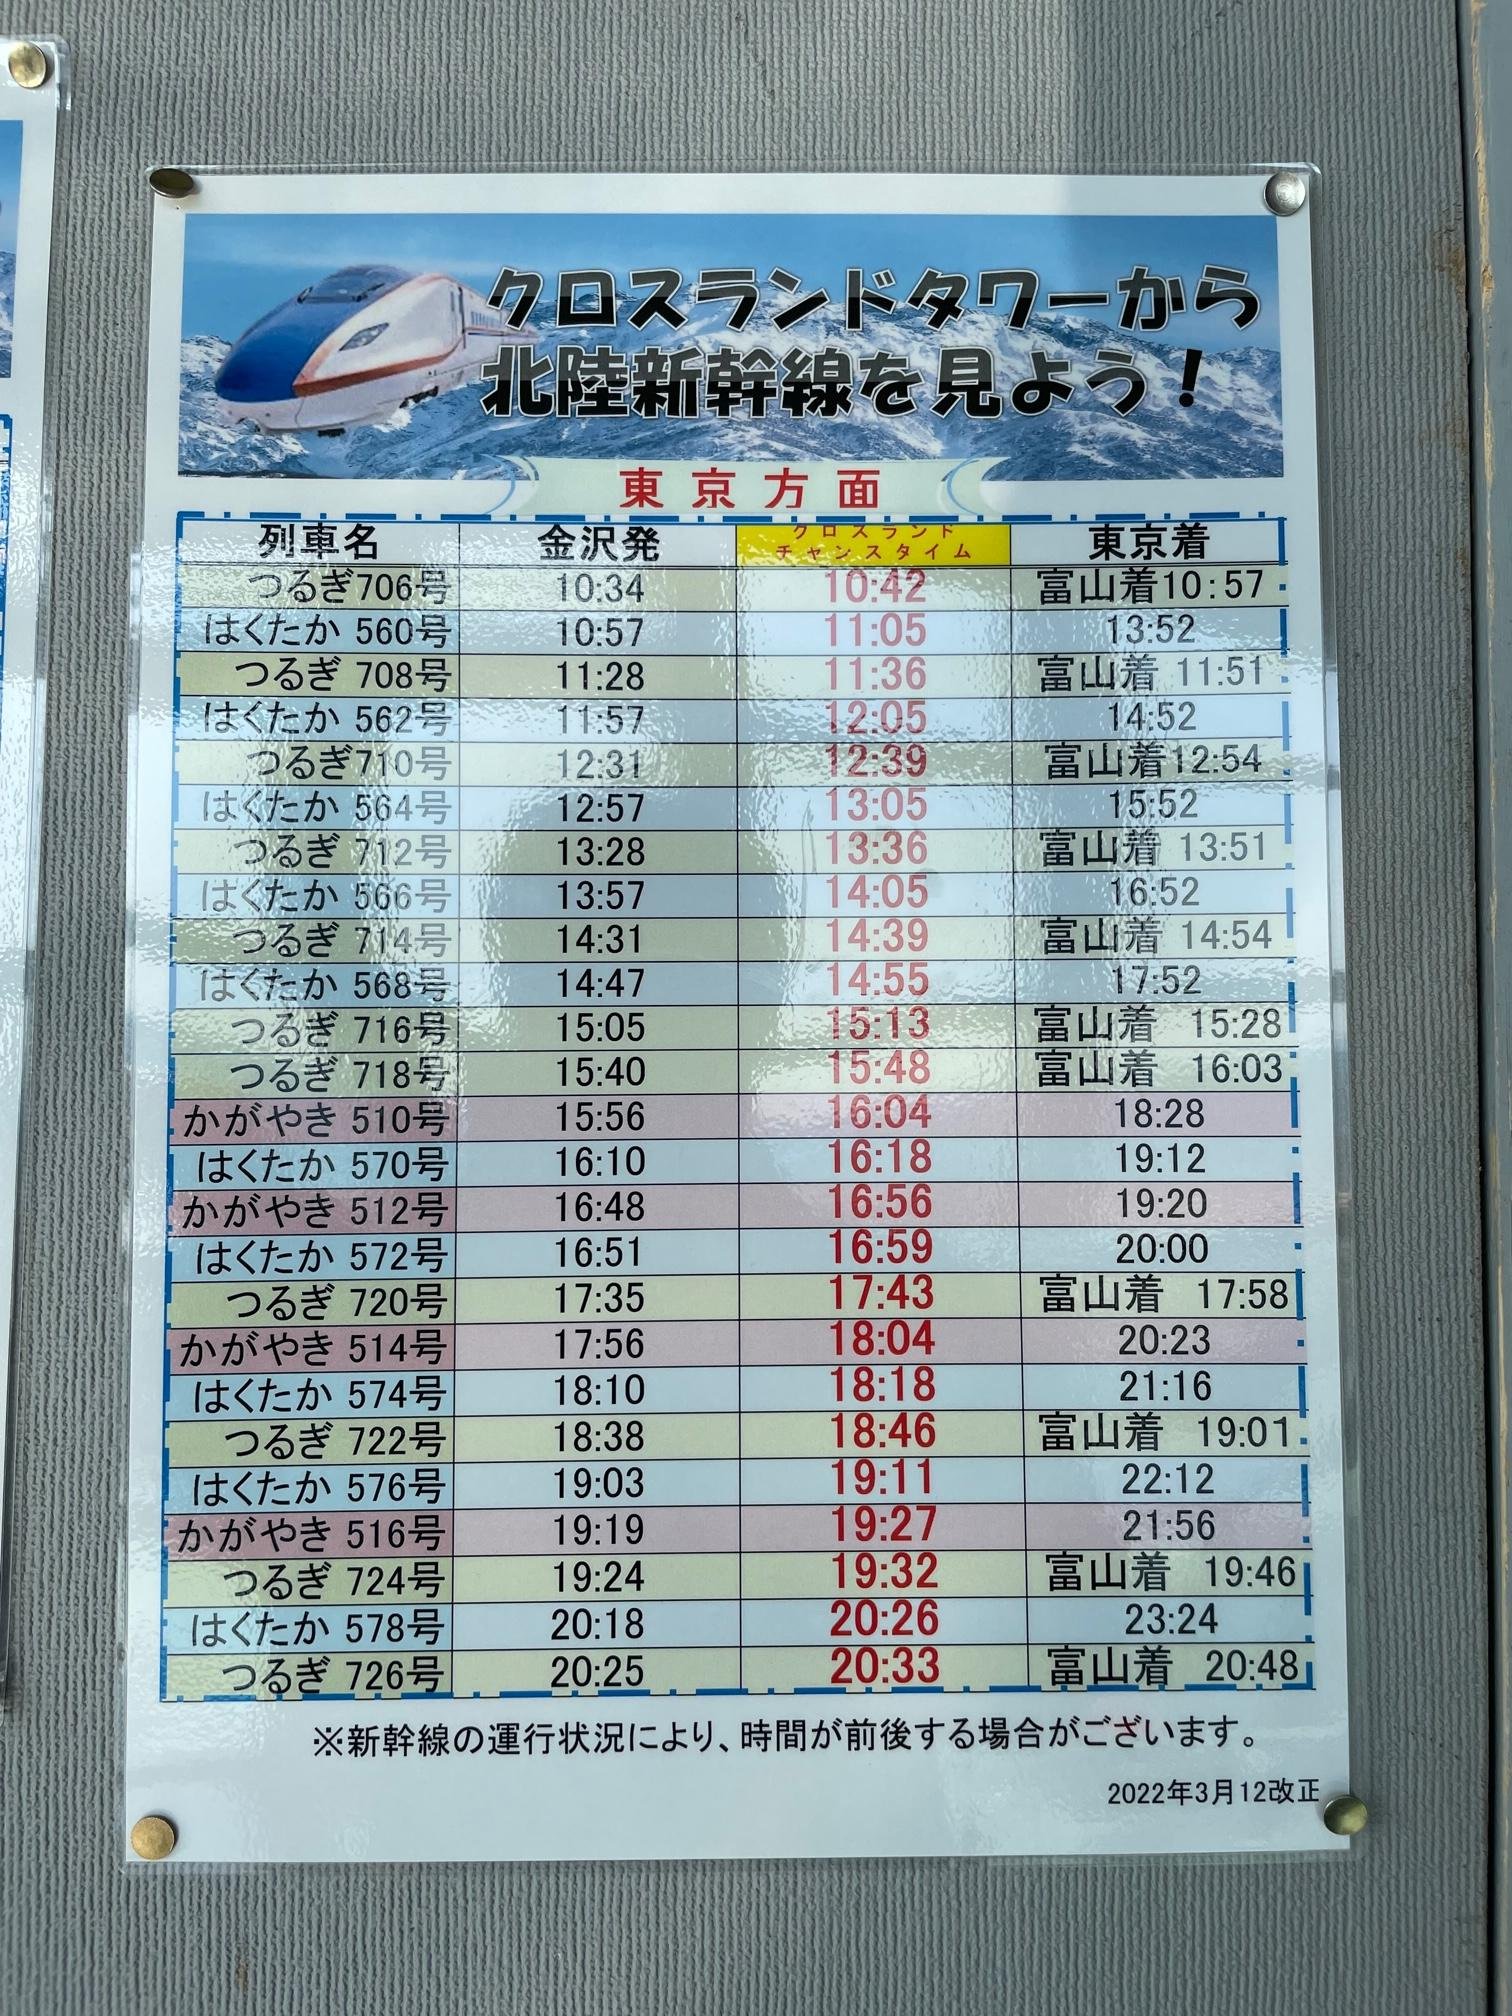 クロスランドタワーから
北陸新幹線を見よう！
東京方面
列車名 金沢発 クロスランドチャンスタイム 東京着
つるぎ706号 10:34 10:42 富山着10:57
はくたか 560号 10:57 11:05 13:52
つるぎ 708号 11:28 11:36 富山着 11:51
はくたか 562号 11:57 12:05 14:52
つるぎ710号 12:31 12:39 富山着12:54
はくたか 564号 12:57 13:05 15:52
つるぎ 712号 13:28 13:36 富山着 13:51
はくたか 566号 13:57 14:05 16:52
つるぎ 714号 14:31 14:39 富山着 14:54
はくたか 568号 14:47 14:55 17:52
つるぎ 716号 15:05 15:13 富山着 15:28
つるぎ 718号 15:40 15:48 富山着 16:03
かがやき 510号 15:56 16:04 18:28
はくたか 570号 16:10 16:18 19:12
かがやき 512号 16:48 16:56 19:20
はくたか 572号 16:51 16:59 20:00
つるぎ 720号 17:35 17:43 富山着 17:58
かがやき 514号 17:56 18:04 20:23
はくたか 574号 18:10 18:18 21:16
つるぎ 722号 18:38 18:46 富山着 19:01
はくたか 576号 19:03 19:11 22:12
かがやき 516号 19:19 19:27 21:56
つるぎ 724号 19:24 19:32 富山着 19:46
はくたか 578号 20:18 20:26 23:24
つるぎ 726号 20:25 20:33 富山着 20:48
※新幹線の運行状況により、時間が前後する場合がございます。
2022年3月12改正